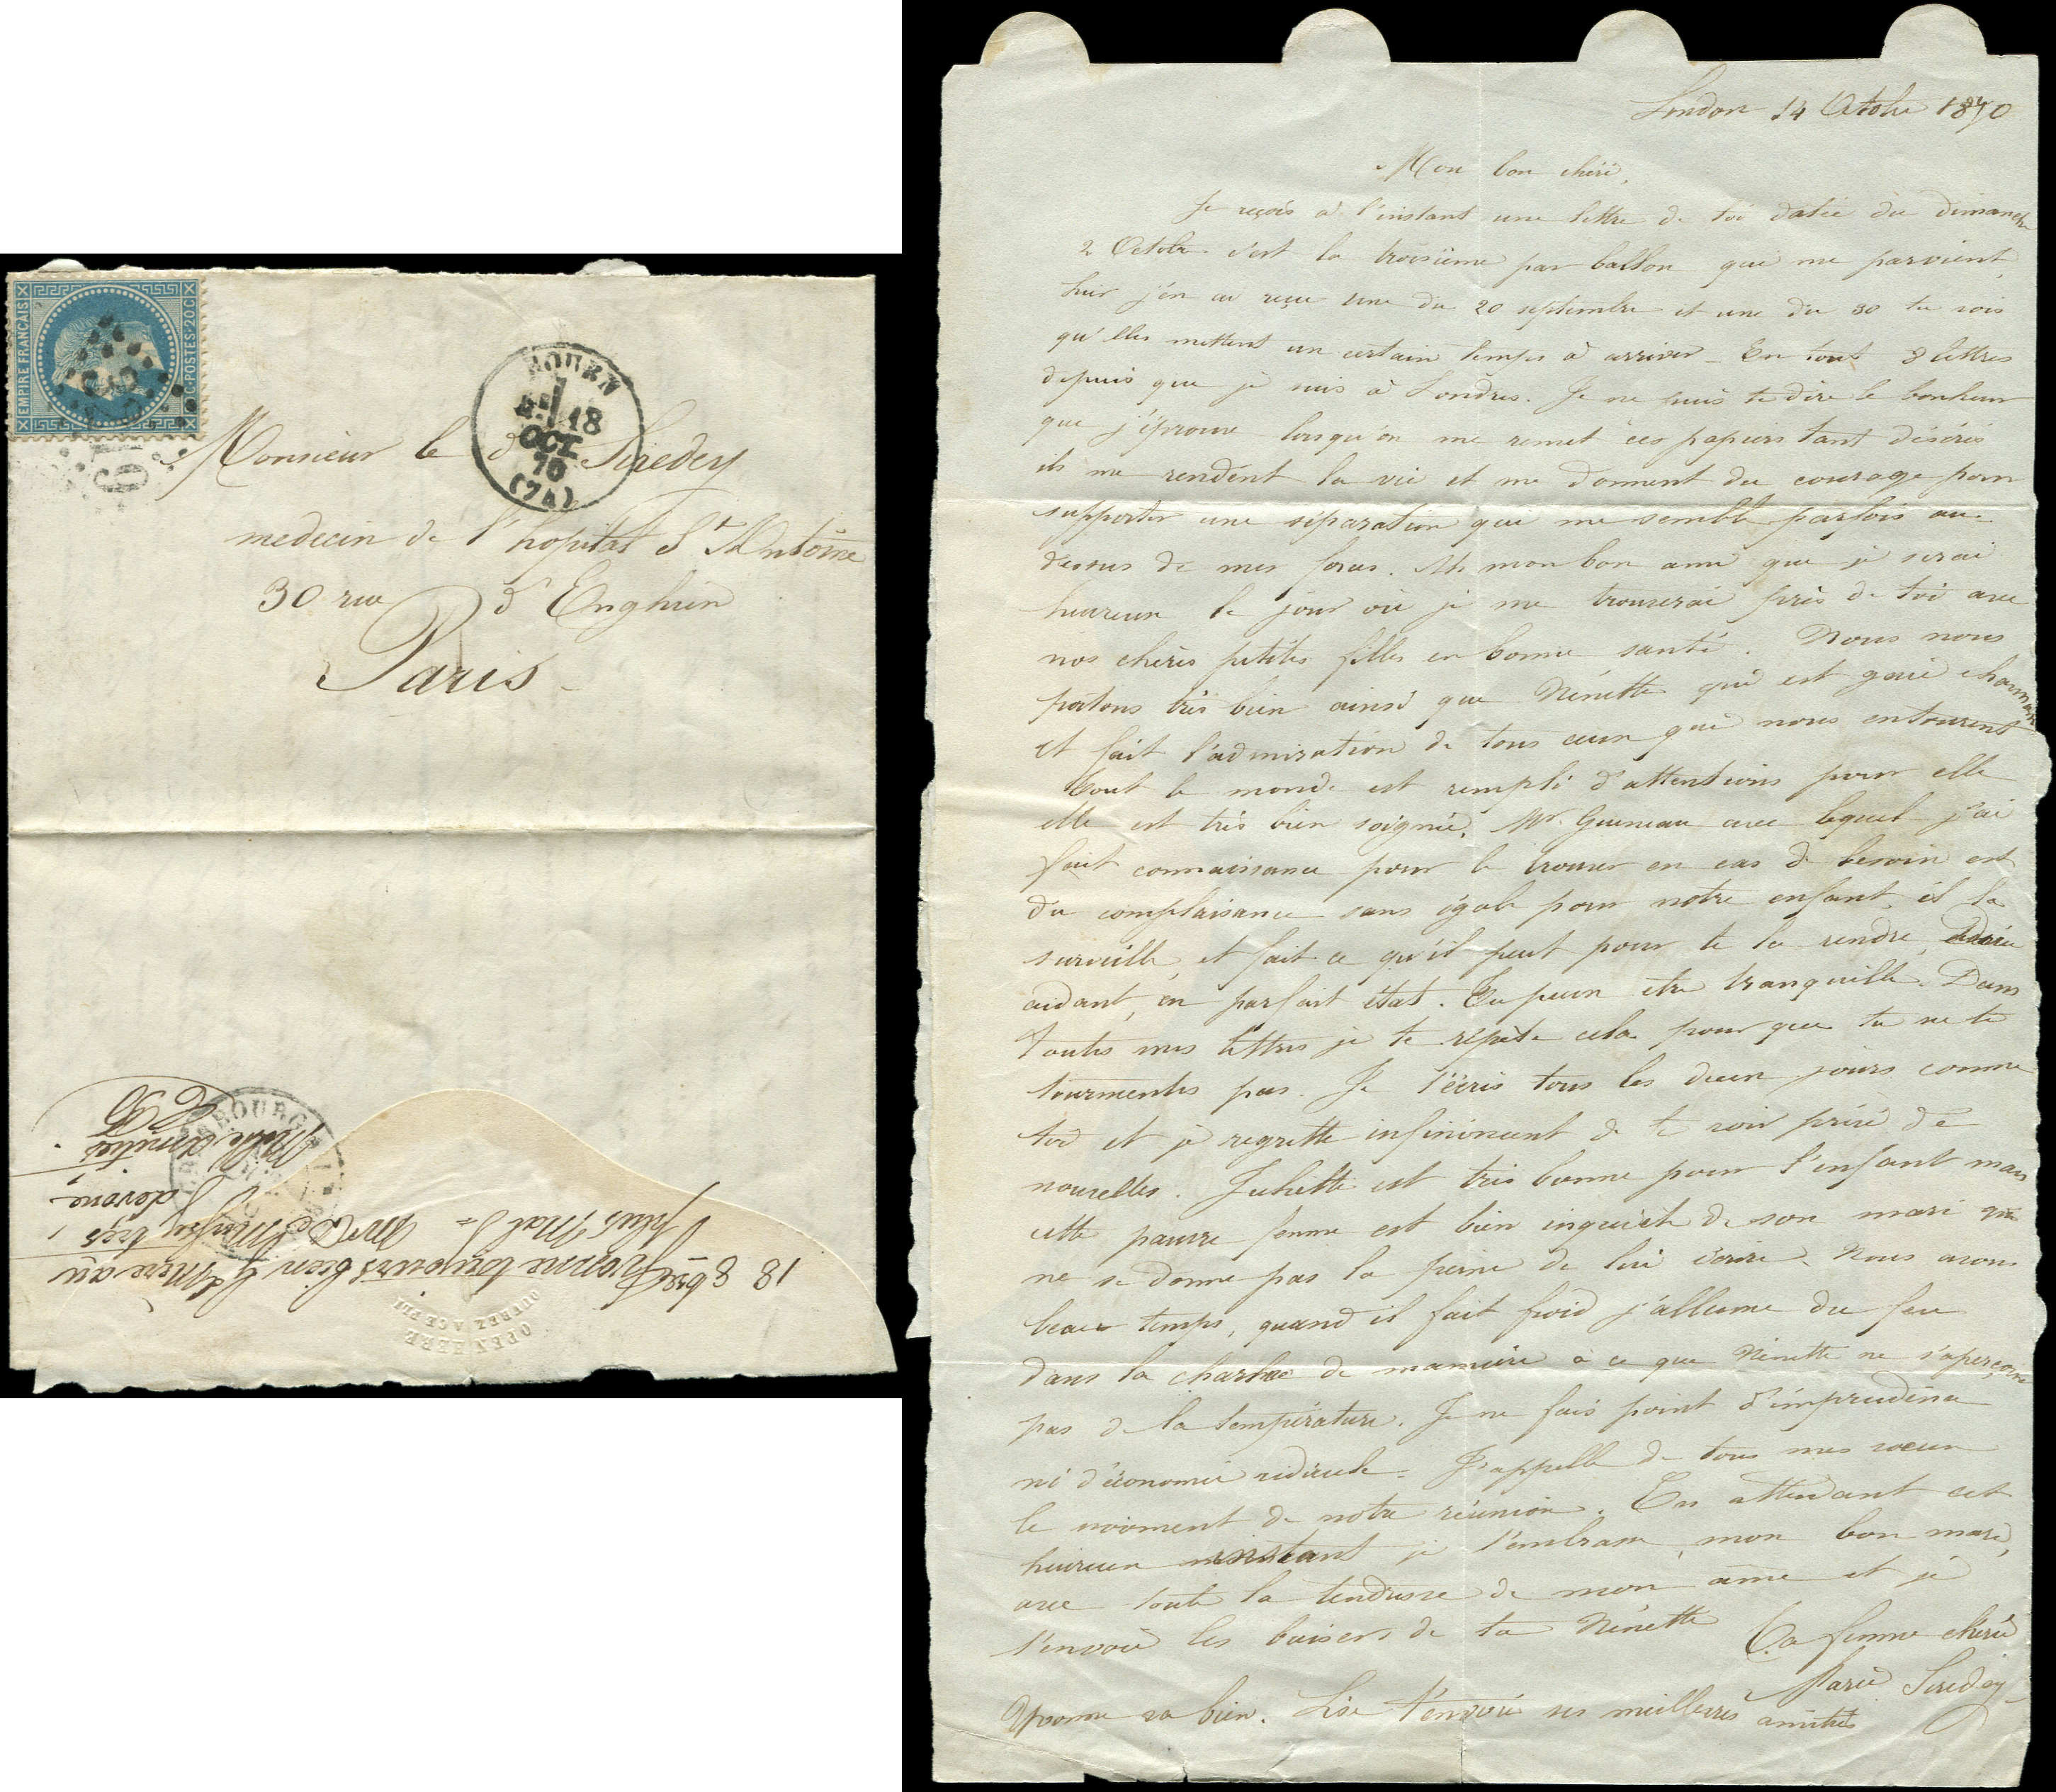 EMPIRE FRANÇAIS
20.C-POSTES-20.C
ROUEN
18
OCT
70
(74)
Monsieur le dr Siredey
medecin de l'hopital St Antoine
30 rue d'Enghien
Paris
CHERBOURG
18 8bre Yvonne toujours bien & Mère au
plus Mal
devoué
Mille amitiés
OPEN HERE
OUVREZ A CE PLI
London 14 Octobre 1870
Mon bon chéri,
Je reçois à l'instant une lettre de toi datée du dimanche
2 Octobre c'est la troisième par ballon qui me parvient,
hier j'en ai reçu une du 20 septembre et une du 30 tu vois
qu'elles mettent un certain temps à arriver - En tout 8 lettres
depuis que je suis à Londres. Je ne puis te dire le bonheur
que j'éprouve lorsqu'on me remet ces papiers tant désirés
ils me rendent la vie et me donnent du courage pour
supporter une séparation qui me semble parfois au-
dessus de mes forces. Ah mon bon ami que je serai
heureuse le jour où je me trouverai près de toi avec
nos chères petites filles en bonne santé. Nous nous
portons très bien ainsi que Nénette qui est gaie charmante
et fait l'admiration de tous ceux qui nous entourent
tout le monde est rempli d'attentions pour elle
elle est très bien soignée. Mr. Gueneau avec lequel j'ai
fait connaissance pour le trouver en cas de besoin est
du complaisance sans égale pour notre enfant, il la
surveille, et fait ce qu'il peut pour te la rendre,
aidant, en parfait état. Tu peux être tranquille. Dans
toutes mes lettres je te répète cela pour que tu ne te
tourmentes pas. Je t'écris tous les deux jours comme
toi et je regrette infiniment de te voir privé de
nouvelles. Juliette est très bonne pour l'enfant mais
cette pauvre femme est bien inquiète de son mari qui
ne se donne pas la peine de lui écrire. Nous avons
beau temps, quand il fait froid j'allume du feu
dans la chambre de manière à ce que Nénette ne s'aperçoive
pas de la température. Je ne fais point d'imprudence
ni d'économie ridicule. J'appelle de tous mes vœux
le moment de notre réunion. En attendant cet
heureux instant je t'embrasse, mon bon mari,
avec toute la tendresse de mon âme et je
t'envoie les baisers de ta Nénette
Ta femme chérie
Marie Siredey
Yvonne va bien. Lise t'envoie ses meilleures amitiés